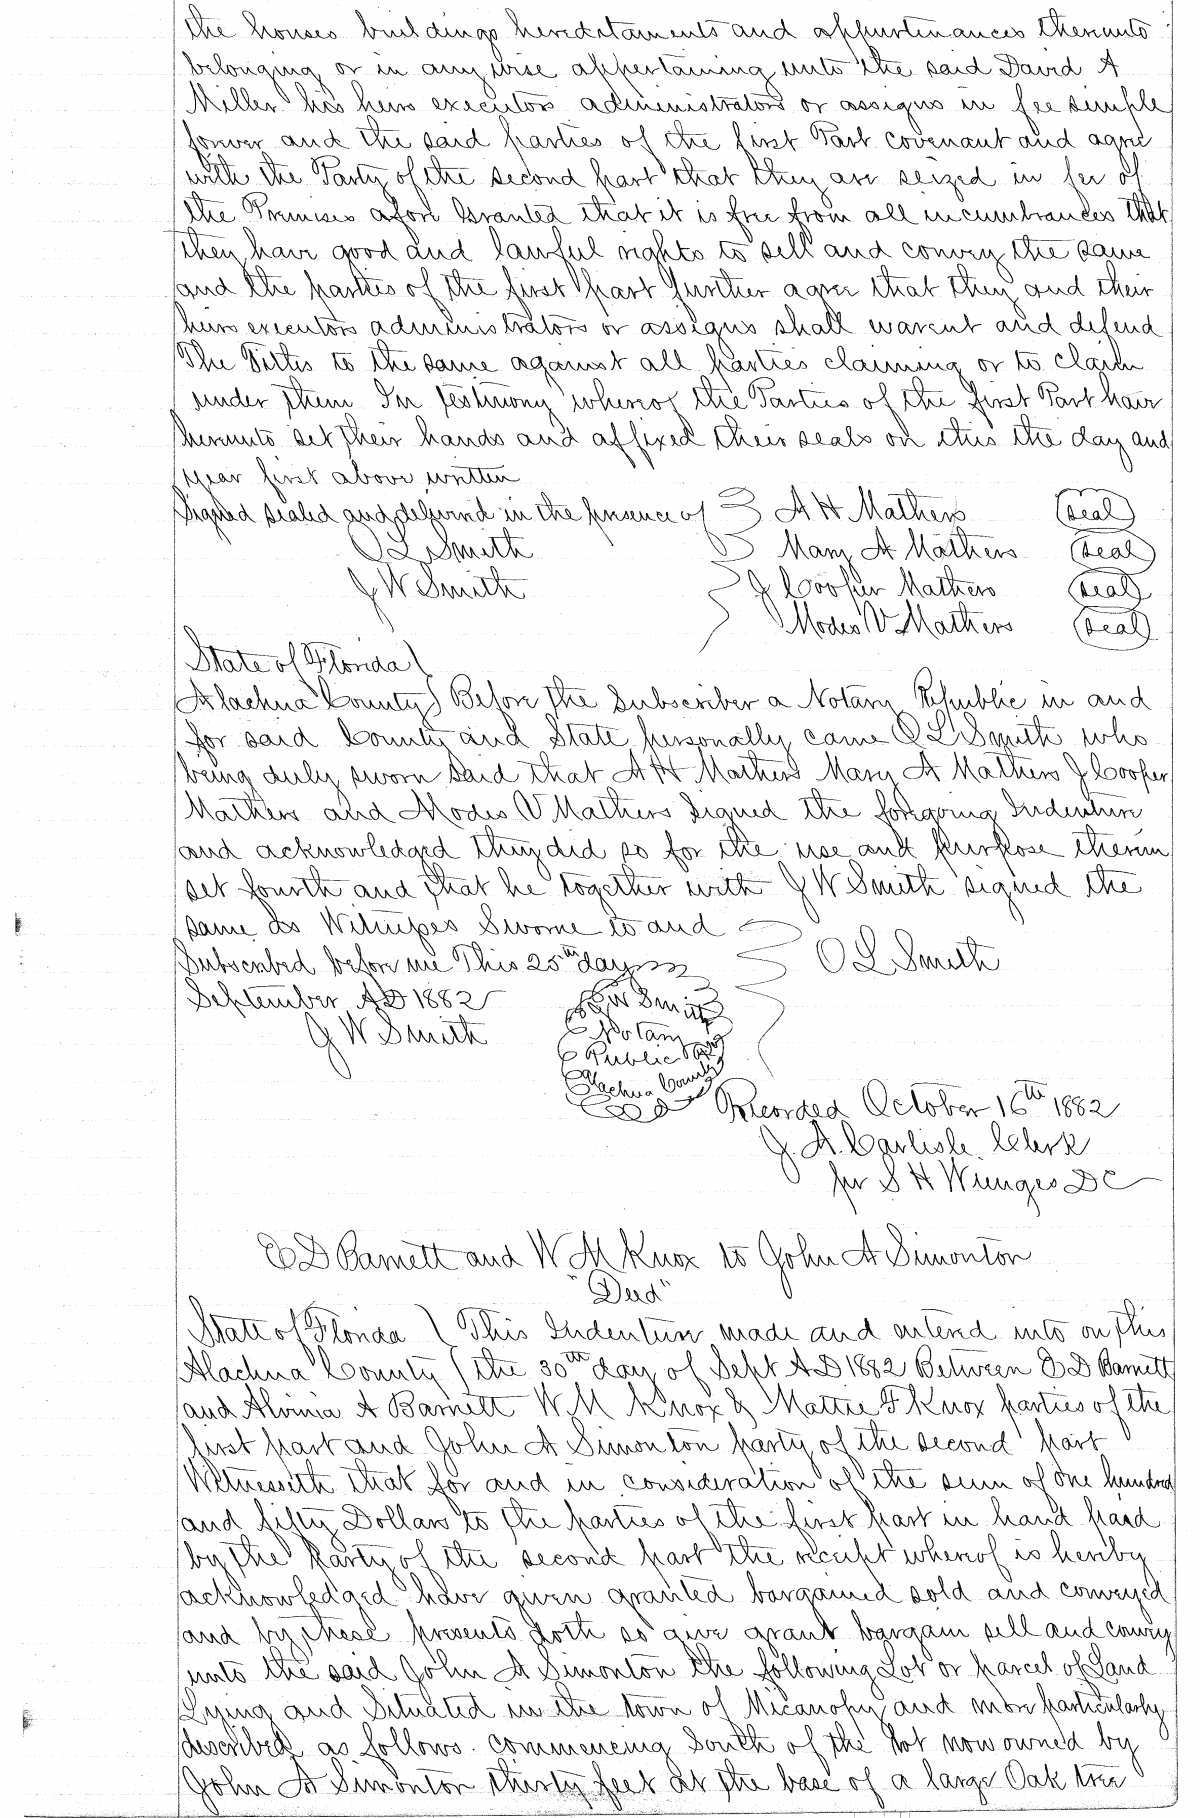 the houses buildings hereditaments and appurtenances thereunto
belonging or in any wise appertaining unto the said David A
Miller his heirs executors administrators or assigns in fee simple
forever and the said parties of the first Part covenant and agree
with the Party of the second part that they are seized in fee of
the Premises afore Granted that it is free from all incumbrances that
they have good and lawful rights to sell and convey the same
and the parties of the first part further agree that they and their
heirs executors administrators or assigns shall warent and defend
The Titles to the same against all parties claiming or to claim
under them In testimony whereof the Parties of the first Part have
hereunto set their hands and affixed their seals on this the day and
year first above written
Signed sealed and delivered in the presence of A H Mathers (seal)
O L Smith Mary A Mathers (seal)
J W Smith J Cooper Mathers (seal)
Modes V Mathers (seal)
State of Florida
Alachua County Before the Subscriber a Notary Republic in and
for said County and State personally came O L Smith who
being duly sworn said that A H Mathers Mary A Mathers J Cooper
Mathers and Modes V Mathers Signed the foregoing Indenture
and acknowledged they did so for the use and purpose therein
set fourth and that he together with J W Smith signed the
same as Witnesses Sworne to and
Subscribed before me This 25th day O L Smith
September AD 1882
J W Smith
J W Smith
Notary
Public
Alachua County
Recorded October 16th 1882
J. A. Carlisle Clerk
per S H Wienges DC
E D Barnett and W M Knox to John A Simonton
"Deed"
State of Florida This Indenture made and entered into on this
Alachua County the 30th day of Sept AD 1882 Between E D Barnett
and Alvinia A Barnett W M Knox & Mattie F Knox parties of the
first part and John A Simonton party of the second part
Witnesseth that for and in consideration of the sum of One hundred
and fifty Dollars to the parties of the first part in hand paid
by the Party of the second part the receipt whereof is hereby
acknowledged have given granted bargained sold and conveyed
and by these presents doth so give grant bargain sell and convey
unto the said John A Simonton the following Lot or parcel of Land
Lying and Situated in the town of Micanopy and more particularly
described as follows. commencing South of the Lot now owned by
John A Simonton thirty feet at the base of a large Oak tree